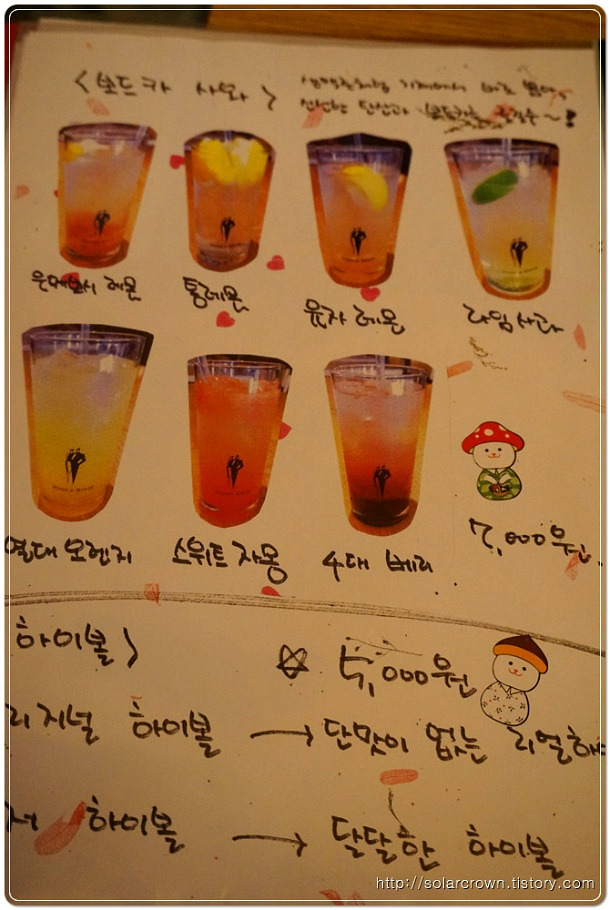 <보드카 사와>
생맥주처럼 기계에서 바로 뽑아,
신선한 탄산과
우메보시 레몬 통레몬 유자 레몬 라임사와
열대 오렌지 스위트 자몽 4대 베리
7,000원
하이볼> ☆ 5,000원
리지널 하이볼 → 단맛이 없는 리얼하
저 하이볼 → 달달한 하이볼
http://solarcrown.tistory.com